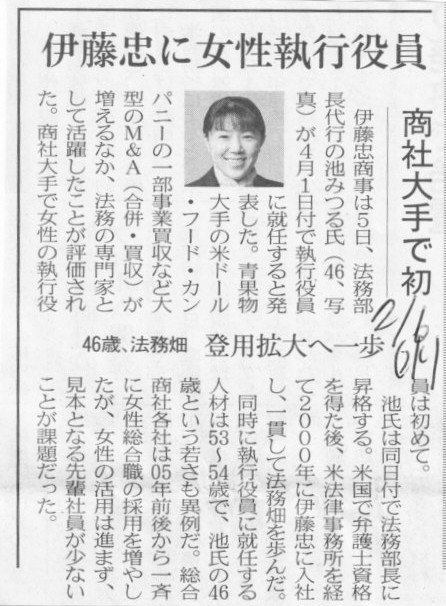 伊藤忠に女性執行役員
商社大手で初
伊藤忠商事は5日、法務部
長代行の池みつる氏(46、写
真)が4月1日付で執行役員
に就任すると発
表した。青果物
大手の米ドール
・フード・カン
パニーの一部事業買収など大
型のM&A(合併・買収)が
増えるなか、法務の専門家と
して活躍したことが評価され
た。商社大手で女性の執行役
員は初めて。
46歳、法務畑 登用拡大へ一歩
池氏は同日付で法務部長に
昇格する。米国で弁護士資格
を得た後、米法律事務所を経
て2000年に伊藤忠に入社
し、一貫して法務畑を歩んだ。
同時に執行役員に就任する
人材は53〜54歳で、池氏の46
歳という若さも異例だ。総合
商社各社は05年前後から一斉
に女性総合職の採用を増やし
たが、女性の活用は進まず、
見本となる先輩社員が少ない
ことが課題だった。
2/6